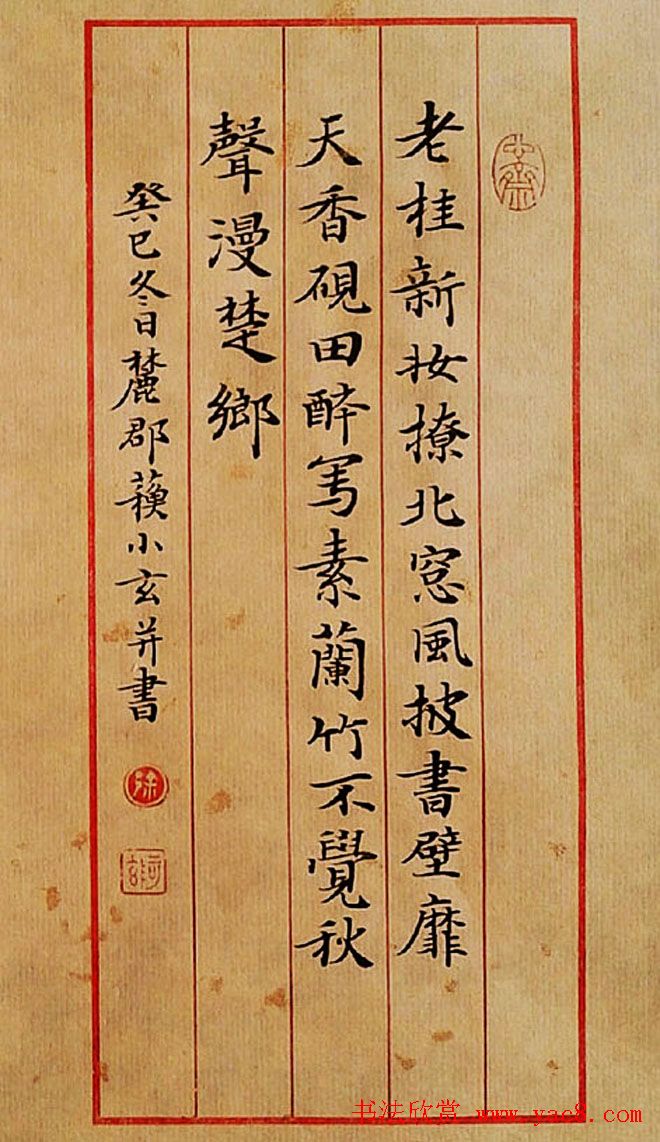 老桂新妝撩北窓風披書壁靡
天香硯田醉写素蘭竹不覺秋
聲漫楚鄉
癸巳冬日麓郡小玄并書
书法欣赏 www.yac8.com